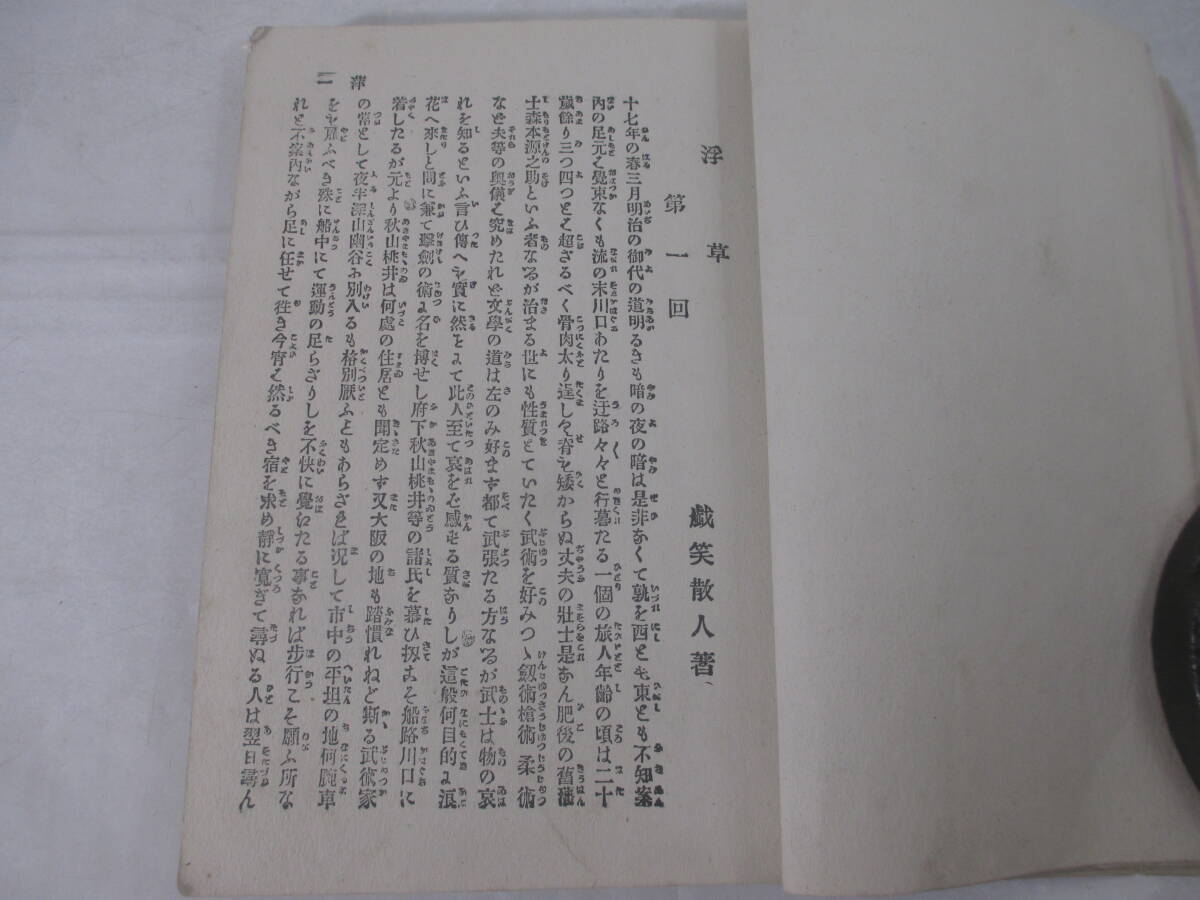 浮草
第一回
戯笑散人著
十七年の春三月明治の御代の道明るきも暗の夜の暗は是非なくて孰を西とも東とも不知案
内の足元も覺束なくも流の末川口あたりを迂路々々と行暮たる一個の旅人年齡の頃は二十
歳餘り三つ四つとも超ざるべく骨肉太り逞しく脊も矮からぬ丈夫の壯士是なん肥後の舊藩
士森本源之助といふ者なるが治まる世にも性質とていたく武術を好みつゝ劔術槍術柔術
など夫等の奧儀も究めたれど文學の道は左のみ好まず都て武張たる方なるが武士は物の哀
れを知るといふ言ひ傳へも實に然にて此人至て哀をも感ずる質なりしが這般何目的に浪
花へ來しと問に兼て擊劍の術に名を博せし府下秋山桃井等の諸氏を慕ひ扨こそ船路川口に
着したるが元より秋山桃井は何處の住居とも聞定めず又大阪の地も踏慣れねど斯る武術家
の常として夜半深山幽谷に別入るも格別厭ふともあらざれば况して市中の平坦の地何腕車
をも雇ふべき殊に船中にて運動の足らざりしを不快に覺ゐたる事なれば步行こそ願ふ所な
れと不案内ながら足に任せて徃き今宵も然るべき宿を求め靜に寛ぎて尋ぬる人は翌日尋ん
萍
一